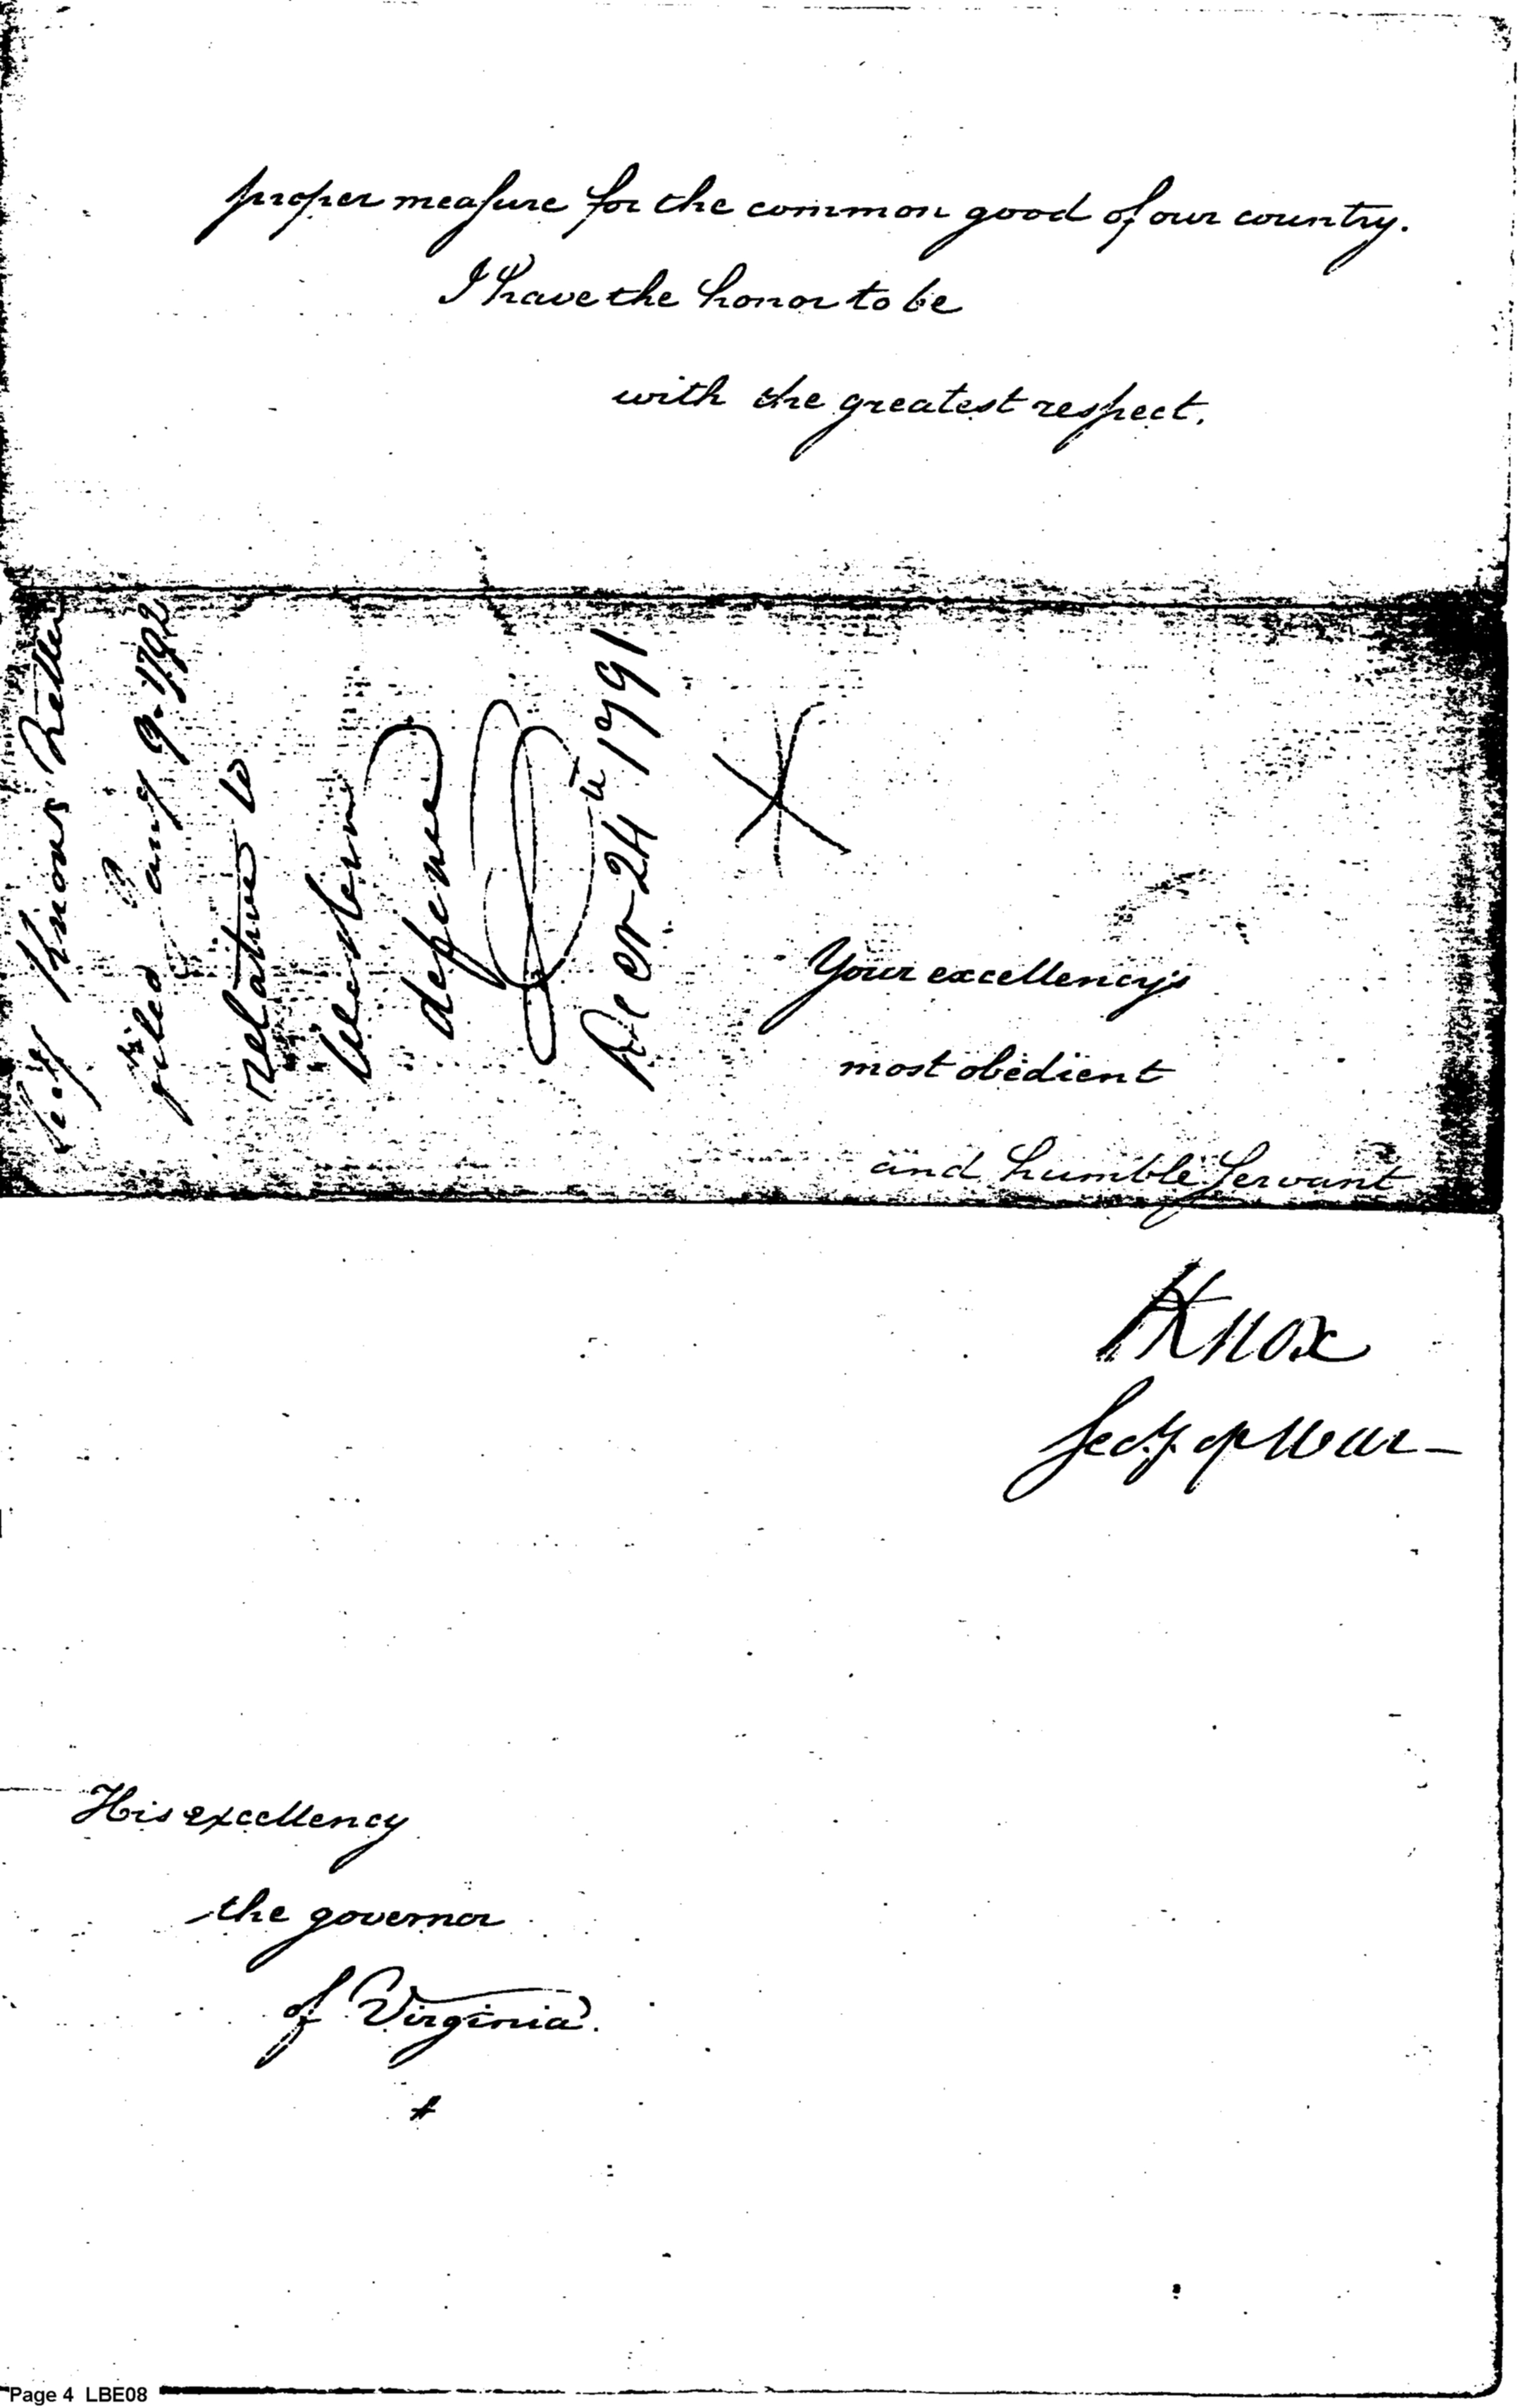 proper measure for the common good of our country.
I have the honor to be
with the greatest respect.
Secy Knox's Letter
filed Jany 9. 1792
relative to
Western
defence
Decr 24th 1791
Your excellency's
most obedient
and humble Servant
HKnox
Secy. of War
His excellency
the governor
of Virginia.
Page 4 LBE08